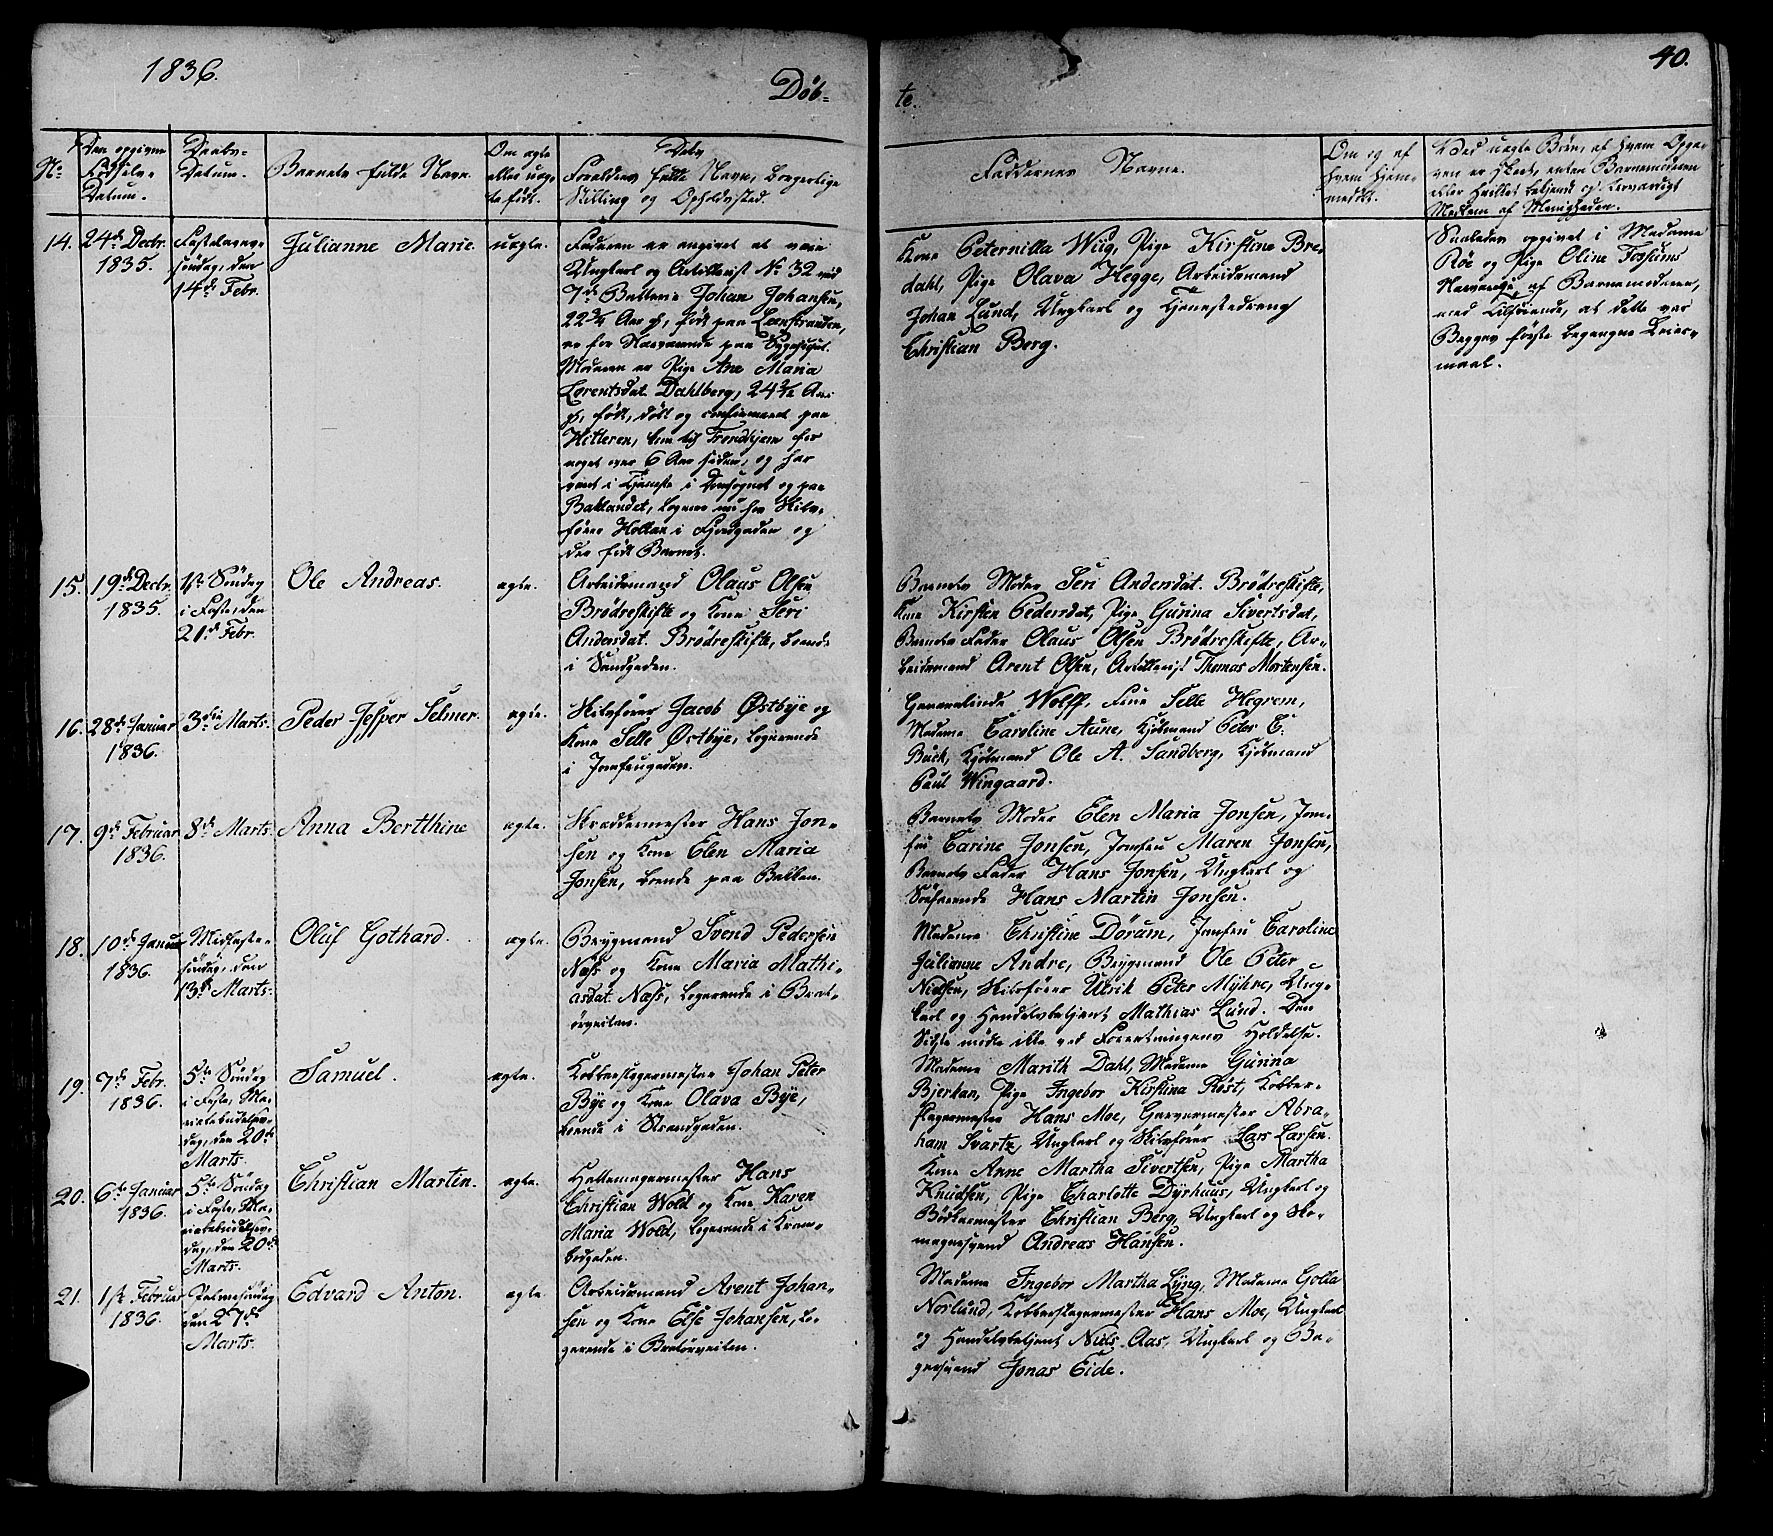 1836.
Døb=
te.
40.
No
Den opgivne
Fødsels-
Datum.
Daabs-
Datum.
Barnets fulde Navn.
Om egte
eller uæg-
te født.
Dets
Forældres fulde Navn, borgerlige
Stilling og Opholdssted.
Faddernes Navne.
Om og af
hvem hjem-
medøbt.
Ved uægte Børn, af hvem Opga-
ven er skeet, enten Barnemoderen
eller hvilket bekjendt og troværdigt
Medlem af Menigheden.
14.
24de Decbr.
1835.
Fastelavns-
søndag, den
14de Febr.
Julianne Marie.
uægte.
Faderen er angivet at være
Ungkarl og Artillerist No 32 ved
7de Batterie Johan Johansen,
22 3/4 Aar gl, født paa Leenstranden,
er for Nærværende paa Sygehuset.
Moderen er Pige Ane Maria
Lorentsdat. Dahlberg, 24 1/2 Aar
gl, født, døbt og confirmeret paa
Hitteren, kom til Trondhjem for
noget over 6 Aar siden, og har
været i Tjeneste i Domsognet og paa
Baklandet, logerer nu hos Skibs-
fører Holtan i Fjordgaden og
der født Barnet.
Kone Peternilla Wiig, Pige Kirstine Bre-
dahl, Pige Olava Hegge, Arbeidsmand
Johan Lund, Ungkarl og Tjenestedreng
Christian Berg.
Saaledes opgivet i Madame
Røe og Pige Oline Fossums
Nærværelse, af Barnemoderen,
med Tilføiende, at dette var
Begges første begangne Leier-
maal.
15.
19de Decbr.
1835.
1ste Søndag
i Faste, den
21de Febr.
Ole Andreas.
ægte.
Arbeidsmand Olaus Olsen
Brödreskifte og Kone Seri
Andersdat. Brödreskifte, boende
i Sandgaden.
Barnets Moder Seri Andersdat. Brödreskifte,
Kone Kirsten Pedersdat, Pige Gurina Sivertsdat,
Barnets Fader Olaus Olsen Brödreskifte, Ar-
beidsmand Arent Olsen, Artillerist Thomas Mortensen.
16.
28de Januar
1836.
3die Marts.
Peder Jesper Selmer.
ægte.
Skibsfører Jacob Østbye og
Kone Selle Østbye, logerende
i Jomfrugaden.
Generalinde Wolff, Frue Selle Hegrem,
Madame Caroline Aune, Kjøbmand Peter E.
Buck, Kjøbmand Ole A. Sandberg, Kjøbmand
Paul Wingaard.
17.
9de Februar
1836.
8de Marts.
Anna Berthine
ægte.
Skræddermester Hans Jon-
sen og Kone Elen Maria
Jonsen, boende paa Bakken.
Barnets Moder Elen Maria Jonsen, Jom-
fru Carine Jonsen, Jomfru Maren Jonsen,
Barnets Fader Hans Jonsen, Ungkarl og
Søefarende Hans Martin Jonsen.
18.
10de Januar
1836.
Midfaste-
søndag, den
13de Marts.
Oluf Gothard.
ægte.
Brygmand Svend Pedersen
Næss og Kone Maria Mathi-
asdat. Næss, logerende i Brat-
ørveiten.
Madame Christine Dørum, Jomfru Caroline
Julianne Andre, Brygmand Ole Peter
Nielsen, Skibsfører Ulrik Peter Myhre, Ung-
karl og Handelsbetjent Mathias Lund. Den
Sidste mødte ikke ved Forretningens Holdelse.
19.
7de Febr.
1836.
5te Søndag
i Faste, Ma-
riæbebudelses-
dag, den 20de
Marts.
Samuel.
ægte.
Kobberslagermester Johan Peter
Bye og Kone Olava Bye,
boende i Strandgaden.
Madame Marith Dahl, Madame Gurina
Bjerkan, Pige Ingebor Kirstina Røst, Kobber-
slagermester Hans Moe, Garvermester Abra-
ham Svartz, Ungkarl og Skibsfører Lars Larsen.
20.
6te Januar
1836.
5te Søndag
i Faste, Ma-
riæbebudelses-
dag, den 20de
Marts.
Christian Martin.
ægte.
Hattemagermester Hans
Christian Wold og Kone Karen
Maria Wold, logerende i Kram-
bodgaden.
Kone Anne Martha Sivertsen, Pige Martha
Knudsen, Pige Charlotte Dyrhaus, Ungkarl og
Bødkermester Christian Berg, Ungkarl og Sko-
magersvend Andreas Hansen.
21.
1ste Februar
1836.
Palmesøndag
den 27de
Marts.
Edvard Anton.
ægte.
Arbeidsmand Arent Johan-
sen og Kone Else Johansen, lo-
gerende i Bratørveiten.
Madame Ingebor Martha Lyng, Madame Golla
Norlund, Kobberslagermester Hans Moe, Ungkarl
og Handelsbetjent Niels Aas, Ungkarl og Ba-
gersvend Jonas Eide.